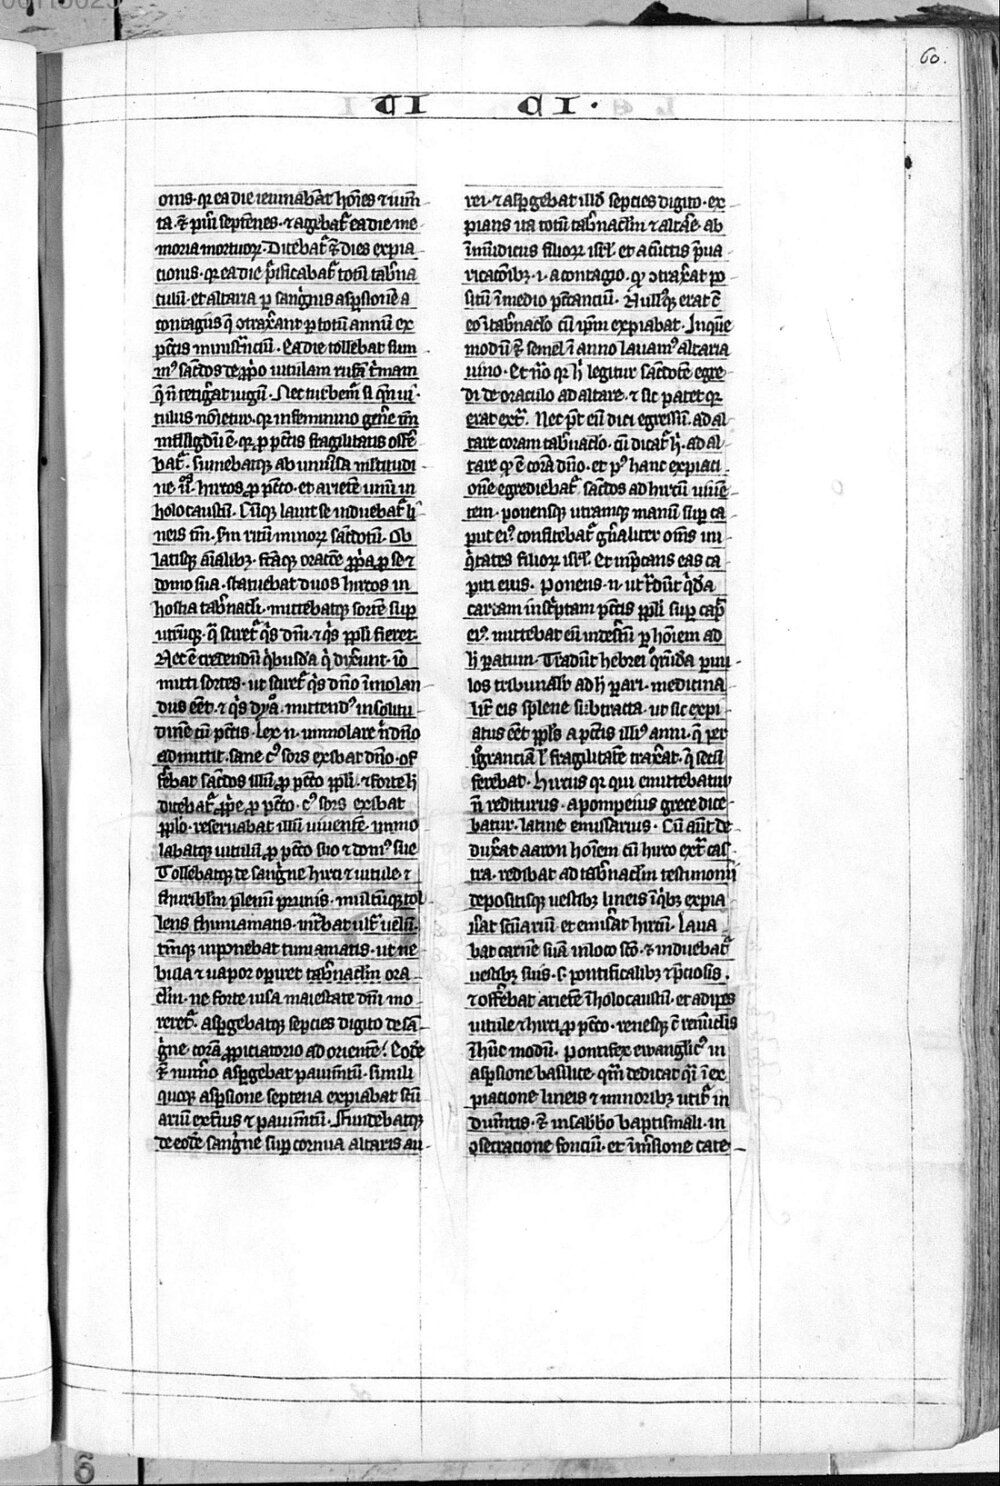 60.
CI CI.
onis. qr ea die ieiunabāt hoīes ⁊ iumē
ta. ⁊̄ pūi septēnes. ⁊ agebat͛ ea die me
moria mortuoꝝ. Dicebat͛ ⁊̄ dies expia
tionis. qr ea die p͛ificabat͛ totū tab͛na
culū. et altaria ꝑ sang͛inis asp̱sionē a
contagiis q̄ ɔtraxerant ꝑ totū annū ex
pctis ministrantiū. Ea die tollebat sum
mꝰ sac͛dos de ꝓp̄o uitulam rufā
q̄ n̄ tetig͛at iugū. Nec turbem͛ si q̄n ui
tulus noīetur. qr in feminino gen͛e tm̄
intˡligdū ē. qr ꝓ pctis fragilitatis offe
bat͛. Sumebatqꝫ ab uniu͛sa multitudi
ne hircos ꝓ pctō. et arietē unū in
holocaustū. Cūqꝫ lauit se induebat͛ li
neis tm̄. sm̄ ritū minorꝝ sac͛dotū. Ob
latisqꝫ aīalibꝫ. fctāqꝫ oratōe ꝓp̄a ꝓ se ⁊
domo sua. statuebat duos hircos in
hostia tab͛nacli. mittebatqꝫ sortē sup
utrūqꝫ. q̄ sciret͛ q͛s dn̄i. ⁊ q͛s ppli fieret.
Nec ē credendū q͛busdā q͛ dixerunt. iō
mitti sortes. ut sciret͛ q͛s dn̄o īmolan
dus eēt. ⁊ q͛s dyā. mittendꝰ in solitu
dinē cū pctis. Lex n. immolare n̄ dn̄o
admittit. sane cꝰ sors exibat dn̄o. of
ferebat sac͛dos illū ꝓ pctō ppli. ⁊ forte h̄
dicebat͛ ꝓp̄e ꝓ pctō. cꝰ sors exibat
pplō. reseruabat illū uiuentē. immo
labatqꝫ uitulū ꝓ pctō suo ⁊ domꝰ sue
Tollebatqꝫ de sang͛ne hirci ⁊ uitule ⁊
thuriblm̄ plenū prunis. multūqꝫ tol
lens thimiamatis. int͛bat ult͛ uelū.
t͛mqꝫ inponebat timiamatis. ut ne
bula ⁊ uapor opiret tab͛naclm̄ ora
clm̄. ne forte uisa maiestate dn̄i mo
reret͛. Asp̱gebatqꝫ septies digito de sā
g͛ne. corā ꝓpiciatorio ad orientē. Eodē
⁊̄ num͛o asp̱gebat pauimtū. simili
quoqꝫ asp̱sione septena expiabat sctū
ariū ext͛ius ⁊ pauimtū. Fundebatqꝫ
de eodē sang͛ne sup cornua altaris au
rei. ⁊ asp̱gebat illud septies digito. ex
pians ita totū tab͛naclm̄ ⁊ altare. ab
inmūdiciis filiorꝝ isrl. et a cūctis p̄ua
ricacōibꝫ. i. a contagio. qꝫ ɔtraxerat po
situ ī medio peccanciū. Nullusqꝫ erat tc̄
eo ī tab͛nacl͛o cū ipm̄ expiabat. Inquē
modū ⁊̄ semel ī anno lauamꝰ altaria
uino. Et n̄o qr h̄ legitur sac͛dotē egre
di de oraculo ad altare. ⁊ sic patet qr
erat extͣ. Nec pt̄ eū dici egressū. ad al
tare coram tab͛nacl͛o. cū dicat͛ h̄. ad al
tare qꝫ ē corā dn̄o. et pꝰ hanc expiaci
onē egrediebat͛ sac͛dos ad hircū uiuē
tem. ponensqꝫ utramqꝫ manū sup ca
put eiꝰ. confitebat͛ gn̄aliter omīs ini
q͛tates filiorꝝ isrl. Et inp̄cans eas ca
piti eius. Ponens. n. ut t͛dūt q͛dā
cartam insc͛ptam pctīs ppli sup cap̄
eiꝰ. mittebat eū in desertū ꝑ hoīem ad
h̄ patum. Tradūt hebrei q͛ndā paru
los tribunalr ad h̄ pari. medicina
lit͛ eis splene subtracta. ut sic expi
atus eēt pplus a pctis illiꝰ anni. q̄ per
ignoranciā ł fragilitatē traxerat. q̄ secū
ferebat. Hircus qr qui emittebatur
n̄ rediturus. apompeius grece dice
batur. latine emissarius. Cū autē de
duxerat aaron hoīem cū hirco extͣ cas
tra. redibat ad tab͛naclm̄ testimonii
depositisqꝫ uestibꝫ lineis ī q͛bꝫ expia
u͛at sctūariū et emiserat hircū. laua
bat carnē suā in loco sctō. ⁊ induebat͛
uestibꝫ suis. s. pontificalibꝫ ⁊ p̄ciosis.
⁊ offerebat arietē ī holocaustū. et adipes
uitule ⁊ hirci ꝓ pctō. renesqꝫ cū renūclis
ī hūc modū. Pontifex ewanglicꝰ in
asp̱sione basilice. qm̄ dedicat q̄i ī ex
piacione lineis ⁊ minoribꝫ utit͛ in
dumtis. ⁊̄ in sabbō baptismali. in
ɔsecracione fonciū. et īmersione cate